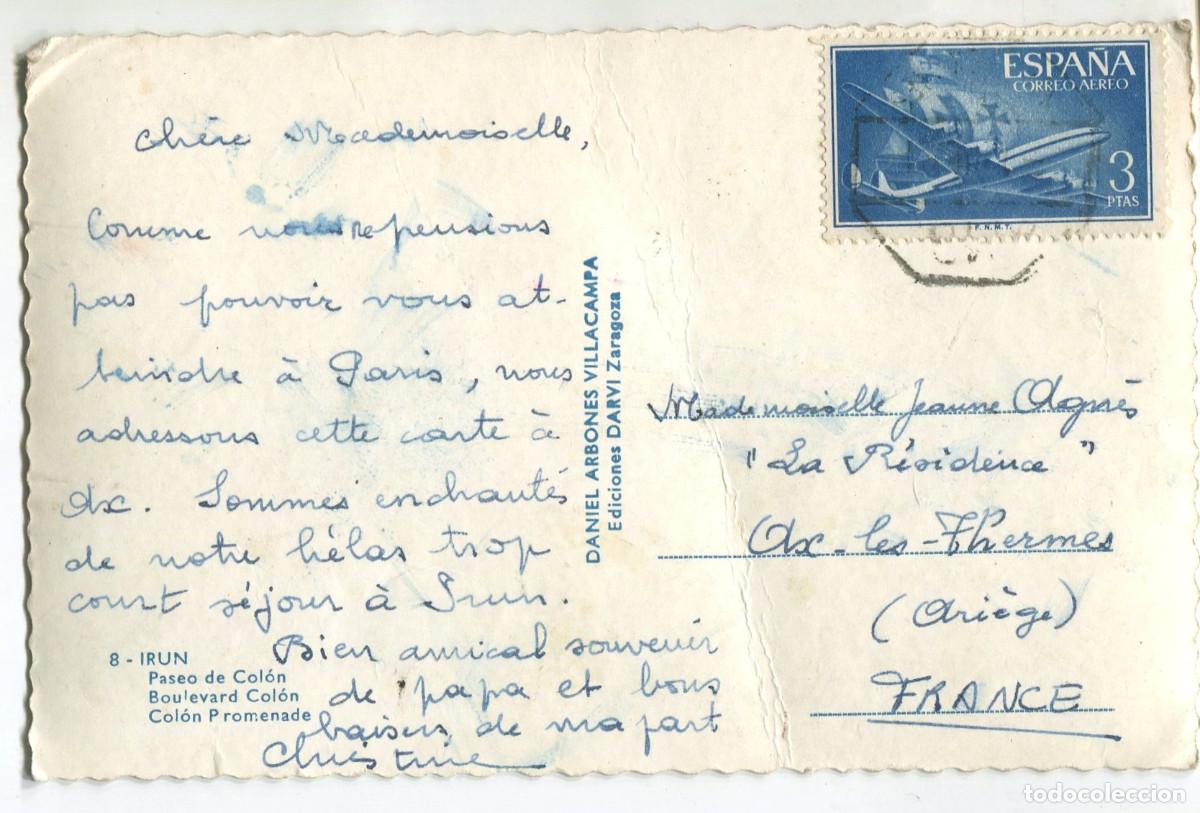 Chère Mademoiselle,
Comme nous ne pensions
pas pouvoir vous at-
teindre à Paris, nous
adressons cette carte à
Ax. Sommes enchantés
de notre hélas trop
court séjour à Irun.
Bien amical souvenir
de papa et bons
baisers de ma part
Christine
8 - IRUN
Paseo de Colón
Boulevard Colón
Colón Promenade
DANIEL ARBONES VILLACAMPA
Ediciones DARVI Zaragoza
ESPAÑA
CORREO AEREO
3
PTAS
F.N.M.T.
Mademoiselle Jeanne Agnès
"La Résidence"
Ax-les-Thermes
(Ariège)
FRANCE
todocoleccion